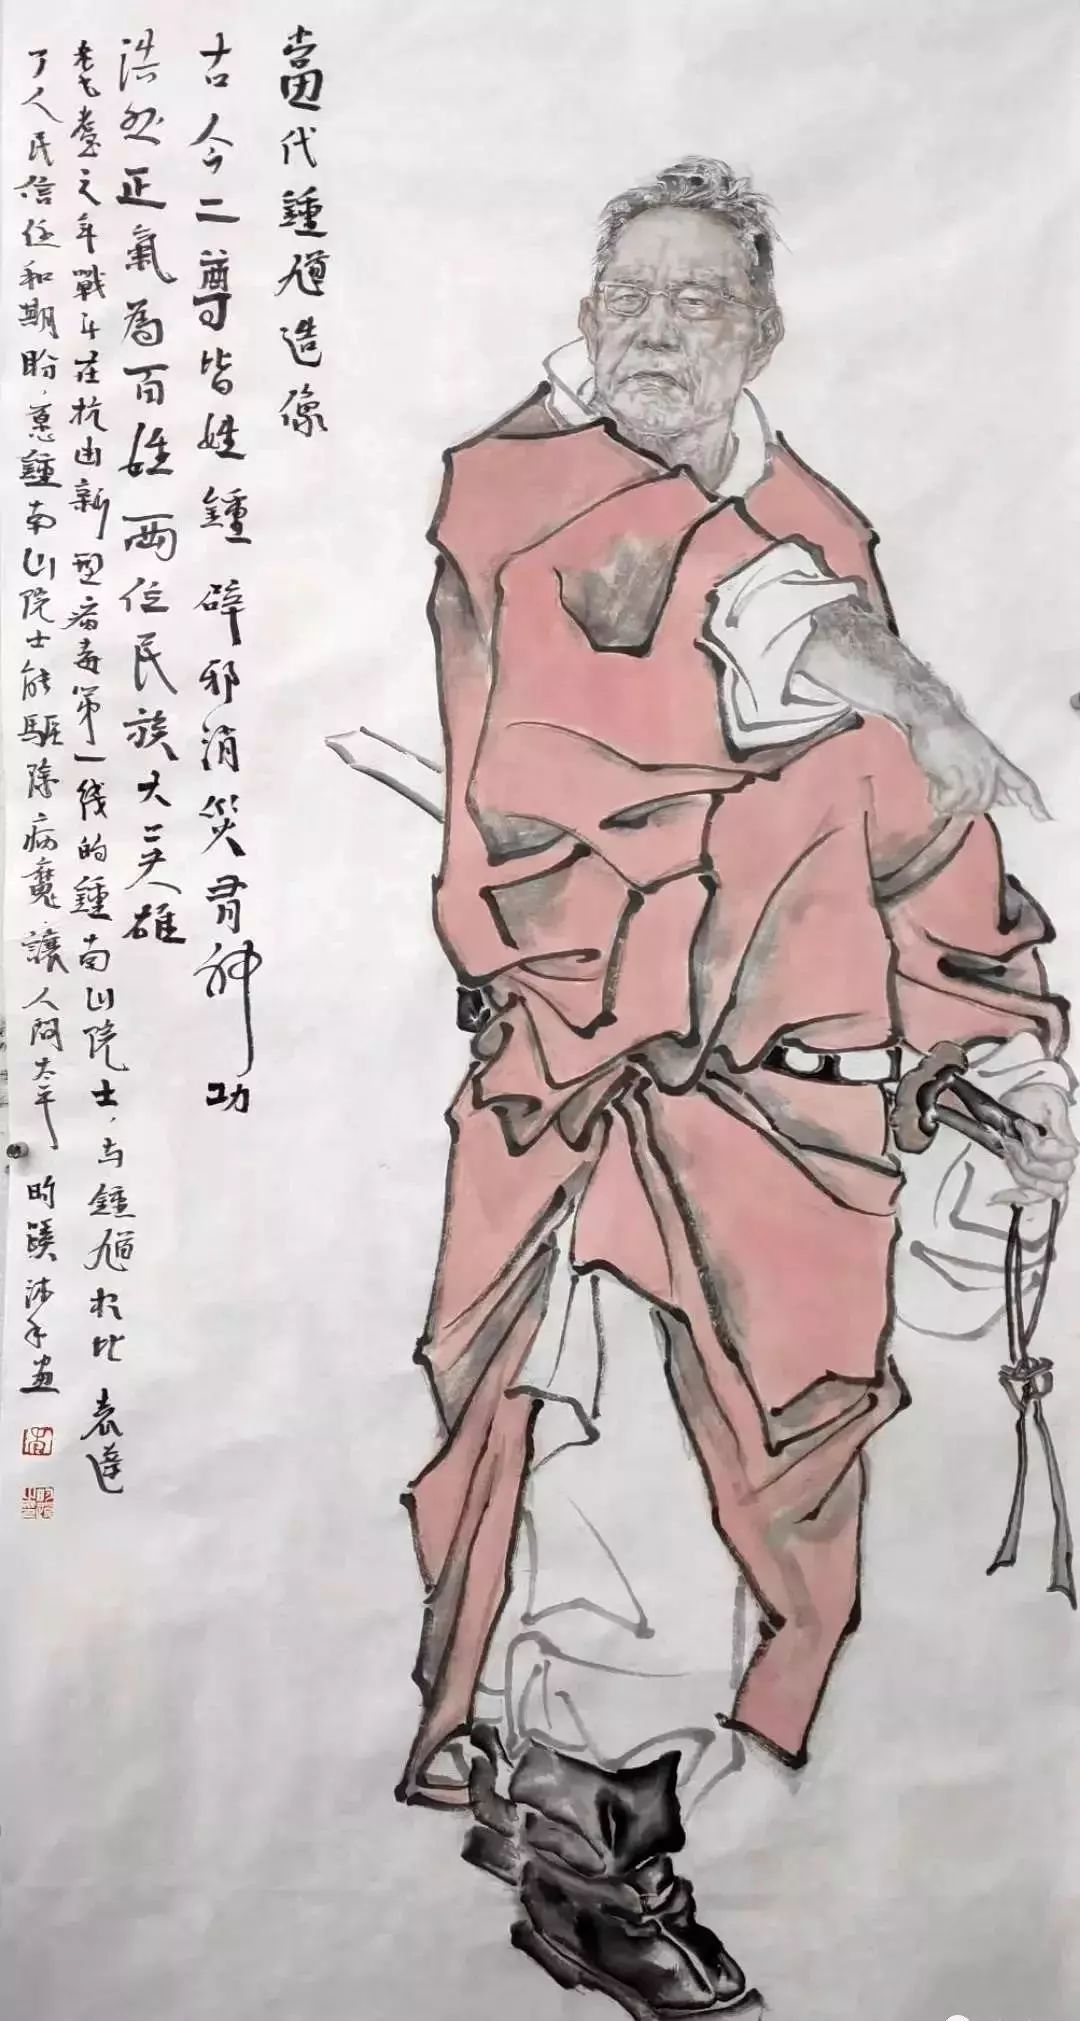 當代鍾馗造像
古今二尊皆姓鍾辟邪消災神功
浩然正氣為百姓兩位民族大英雄
耄耋之年戰斗在抗击新型病毒第一线的鍾南山院士，与鍾馗相比表達
了人民信任和期盼，愿鍾南山院士能驅除病魔，讓人間太平沐手画